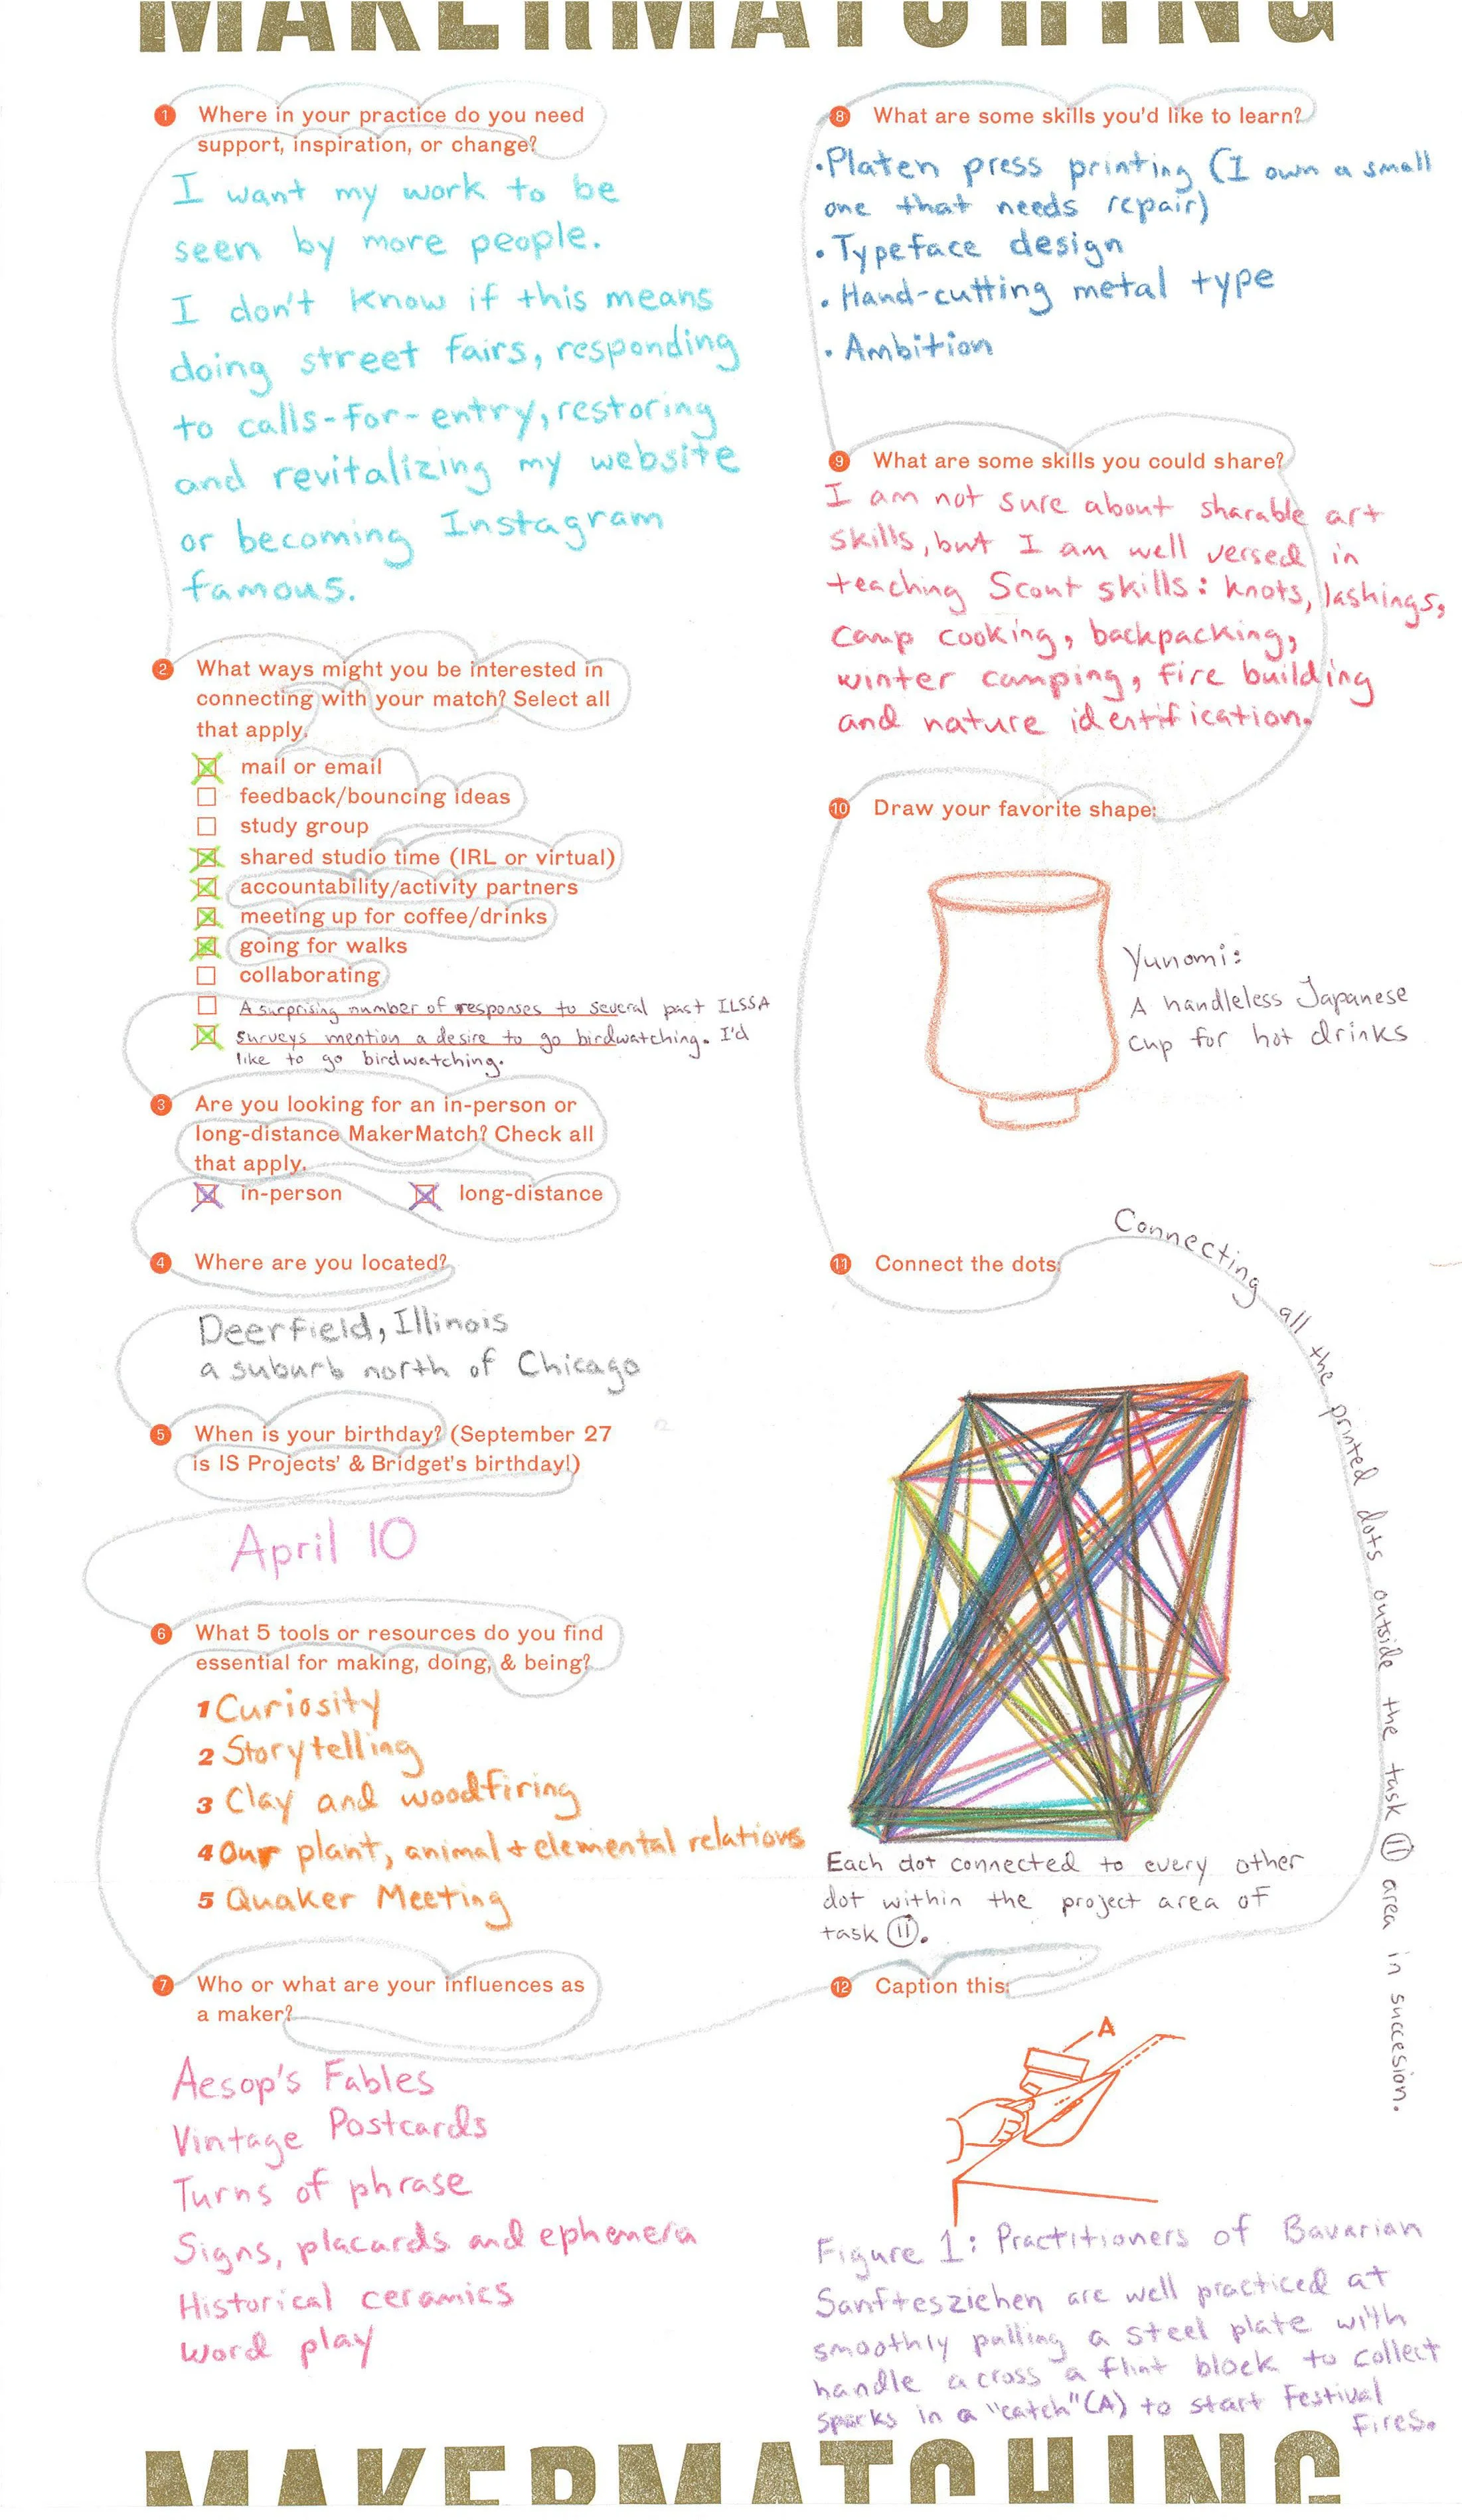 MAKERMATCHING
1 Where in your practice do you need
support, inspiration, or change?
I want my work to be
seen by more people.
I don't know if this means
doing street fairs, responding
to calls-for-entry, restoring
and revitalizing my website
or becoming Instagram
famous.
2 What ways might you be interested in
connecting with your match? Select all
that apply.
mail or email
feedback/bouncing ideas
study group
shared studio time (IRL or virtual)
accountability/activity partners
meeting up for coffee/drinks
going for walks
collaborating
A surprising number of responses to several past ILSSA
surveys mention a desire to go birdwatching. I'd
like to go birdwatching.
3 Are you looking for an in-person or
long-distance MakerMatch? Check all
that apply.
in-person long-distance
4 Where are you located?
Deerfield, Illinois
a suburb north of Chicago
5 When is your birthday? (September 27
is IS Projects' & Bridget's birthday!)
April 10
6 What 5 tools or resources do you find
essential for making, doing, & being?
1 Curiosity
2 Storytelling
3 Clay and woodfiring
4 Our plant, animal + elemental relations
5 Quaker Meeting
7 Who or what are your influences as
a maker?
Aesop's Fables
Vintage Postcards
Turns of phrase
Signs, placards and ephemera
Historical ceramics
Word play
8 What are some skills you'd like to learn?
• Platen press printing (I own a small
one that needs repair)
• Typeface design
• Hand-cutting metal type
• Ambition
9 What are some skills you could share?
I am not sure about sharable art
skills, but I am well versed in
teaching Scout skills: knots, lashings,
camp cooking, backpacking,
winter camping, fire building
and nature identification.
10 Draw your favorite shape:
Yunomi:
A handleless Japanese
cup for hot drinks
11 Connect the dots:
Connecting all the printed dots outside the task 11 area in succesion.
Each dot connected to every other
dot within the project area of
task 11.
12 Caption this:
A
Figure 1: Practitioners of Bavarian
Sanftesziehen are well practiced at
smoothly pulling a steel plate with
handle across a flint block to collect
sparks in a "catch" (A) to start festival
fires.
MAKERMATCHING